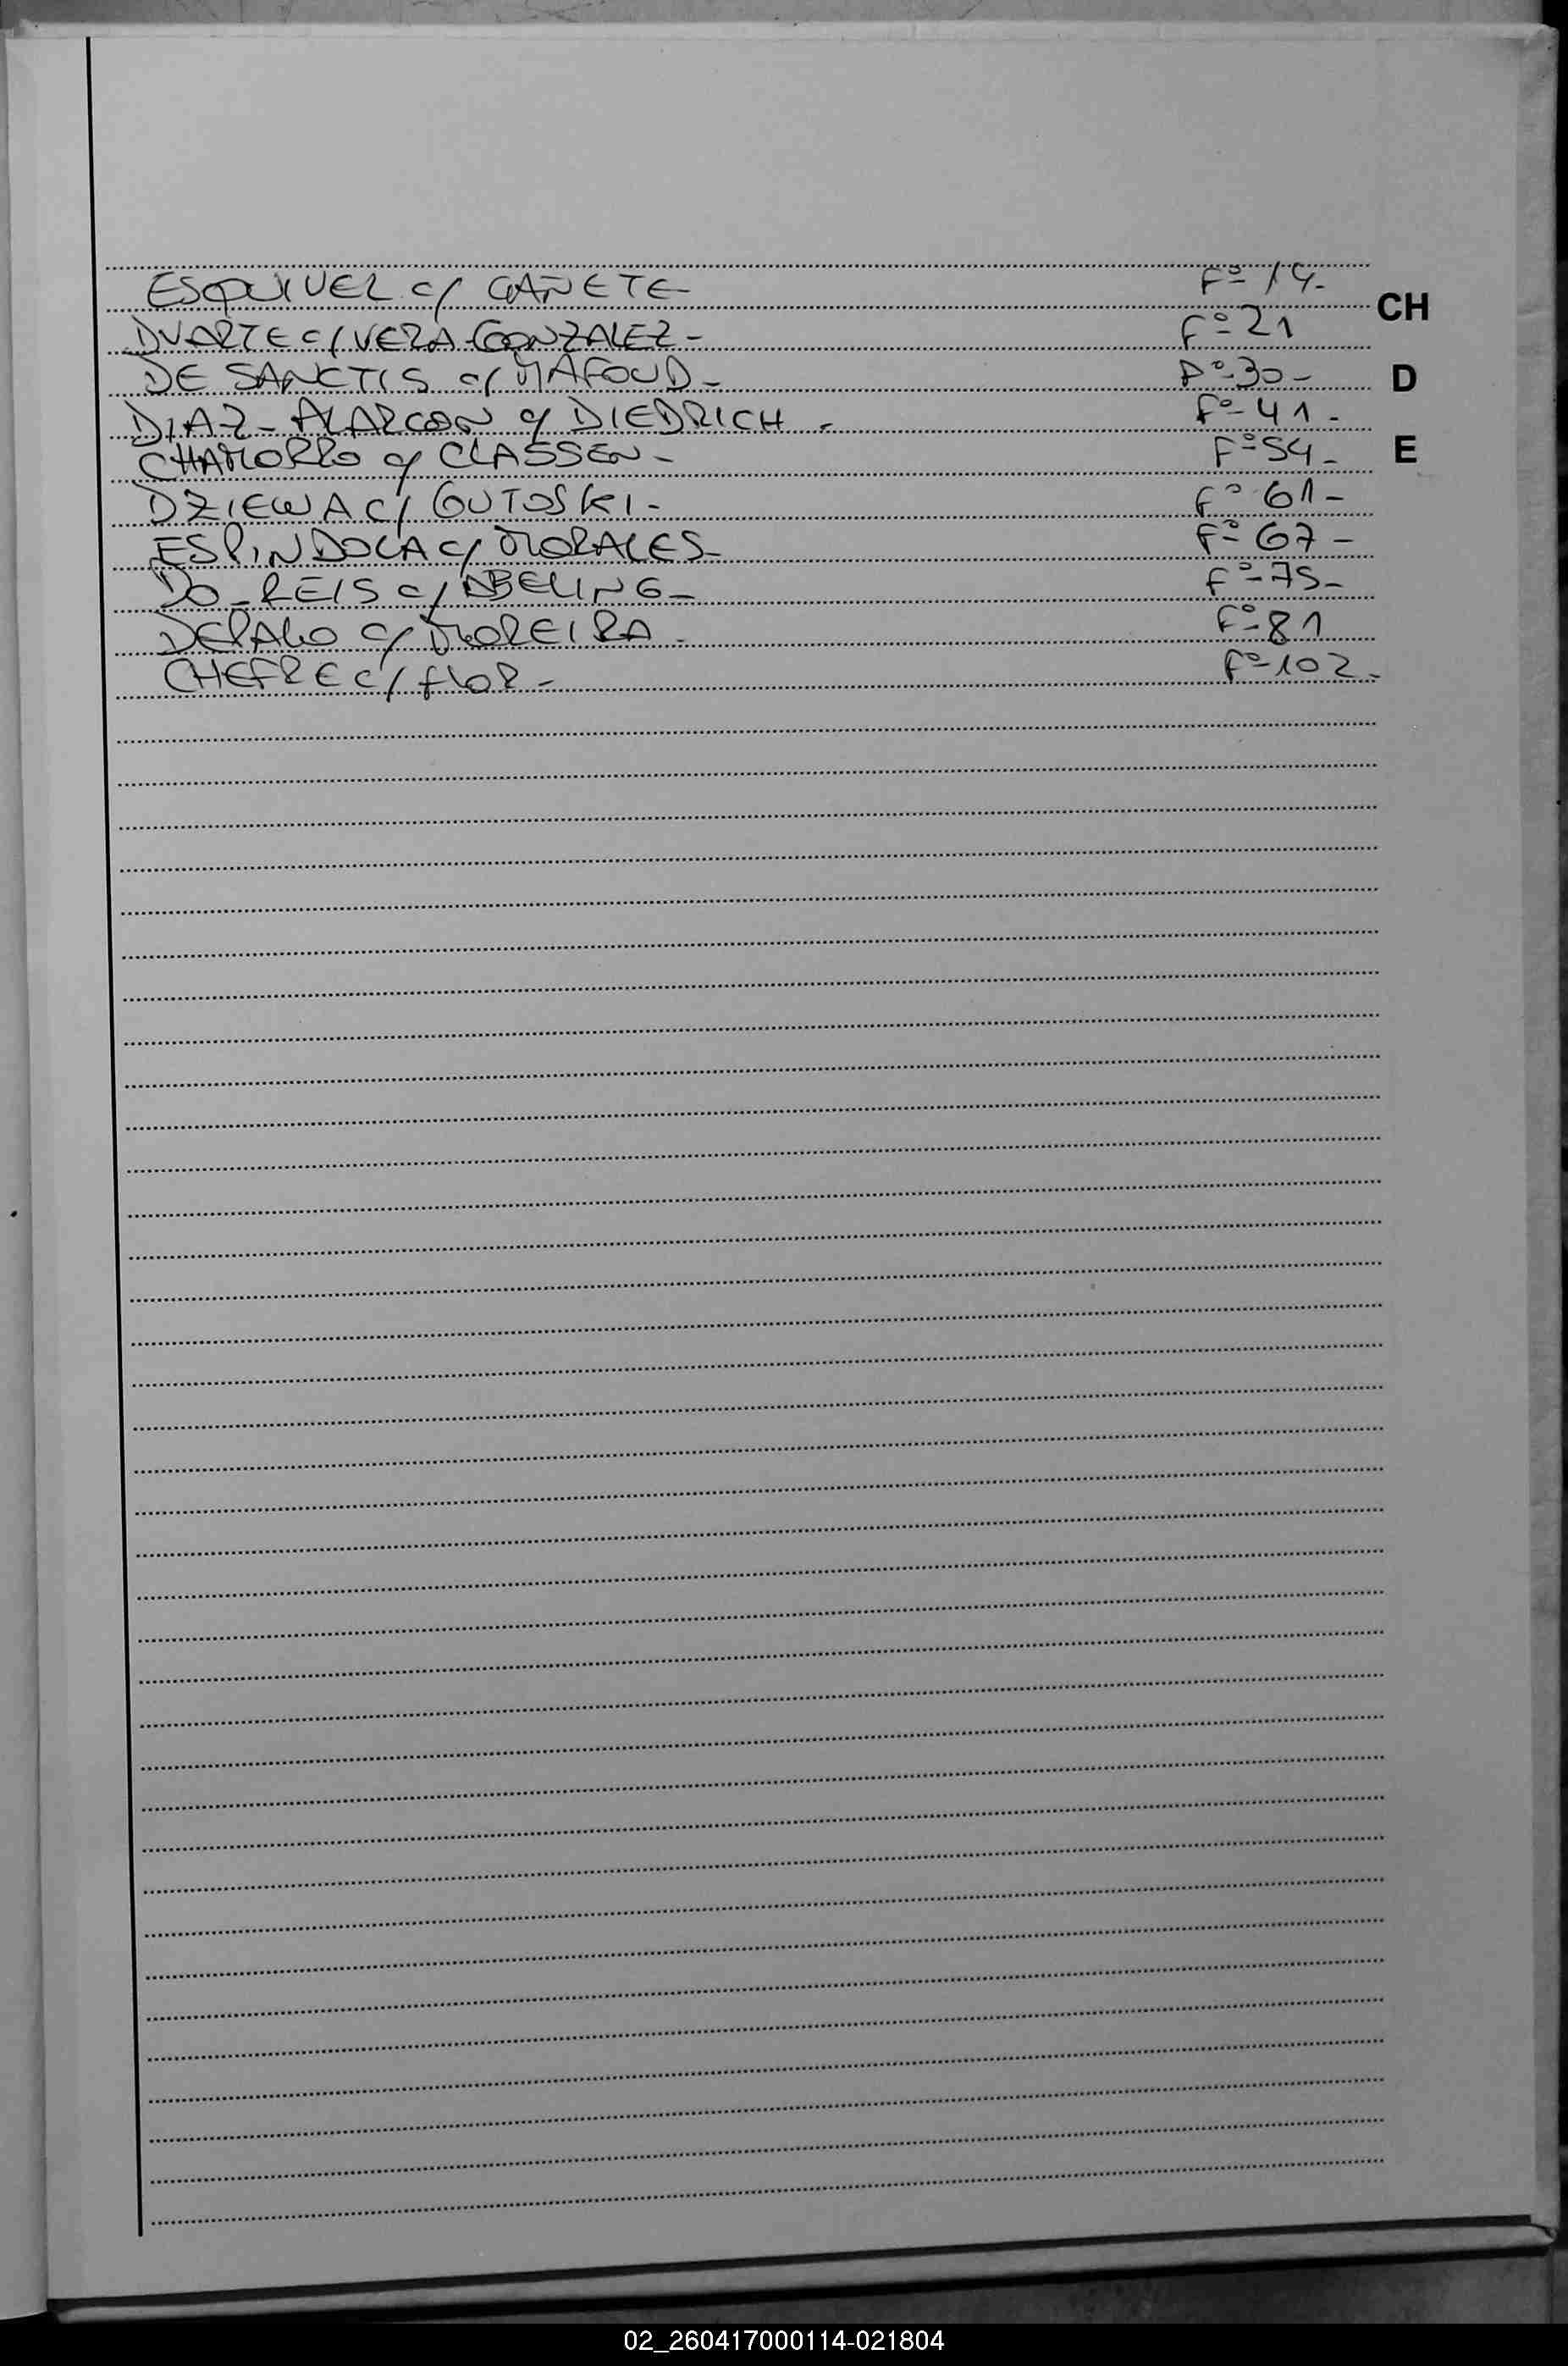 ESQUIVEL c/ CAÑETE- Fº- 14-
CH
DUARTE c/ VERA GONZALEZ- Fº-21
DE SANCTIS c/ MAFOUD- Fº-30-
D
DIAZ- ALARCON c/ DIEDRICH. Fº-41-
CHAMORRO c/ CLASSEN- Fº-54-
E
DZIEWA c/ GUTOSKI- Fº 61-
ESPINDOLA c/ MORALES- Fº-67-
DO_REIS c/ ABELING- Fº-75-
c/ MOREIRA- Fº-81
CHEFRE c/ FLOR- Fº-102-
02_260417000114-021804